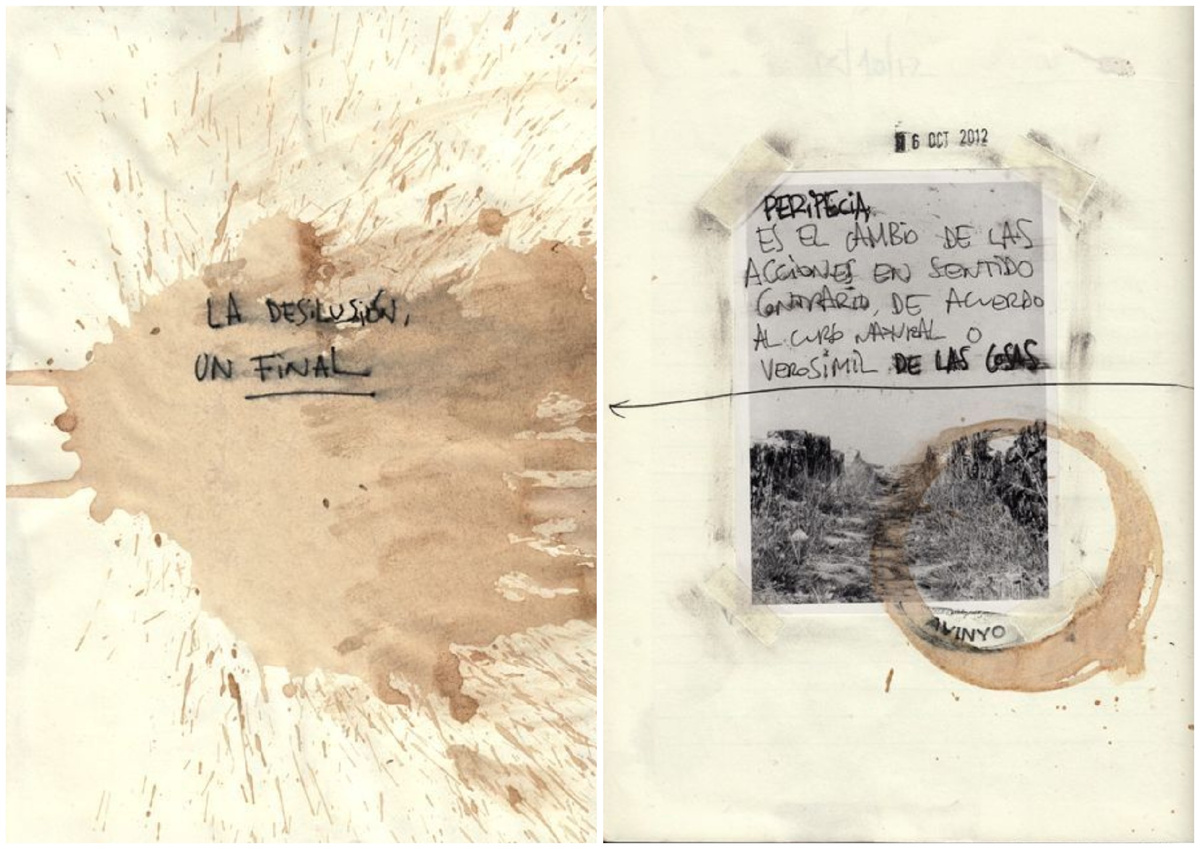 LA DESILUSIÓN,
UN FINAL
6 OCT 2012
PERIPECIA
ES EL CAMBIO DE LAS
ACCIONES EN SENTIDO
CONTRARIO, DE ACUERDO
AL CURSO NATURAL O
VEROSÍMIL DE LAS COSAS
AVINYO